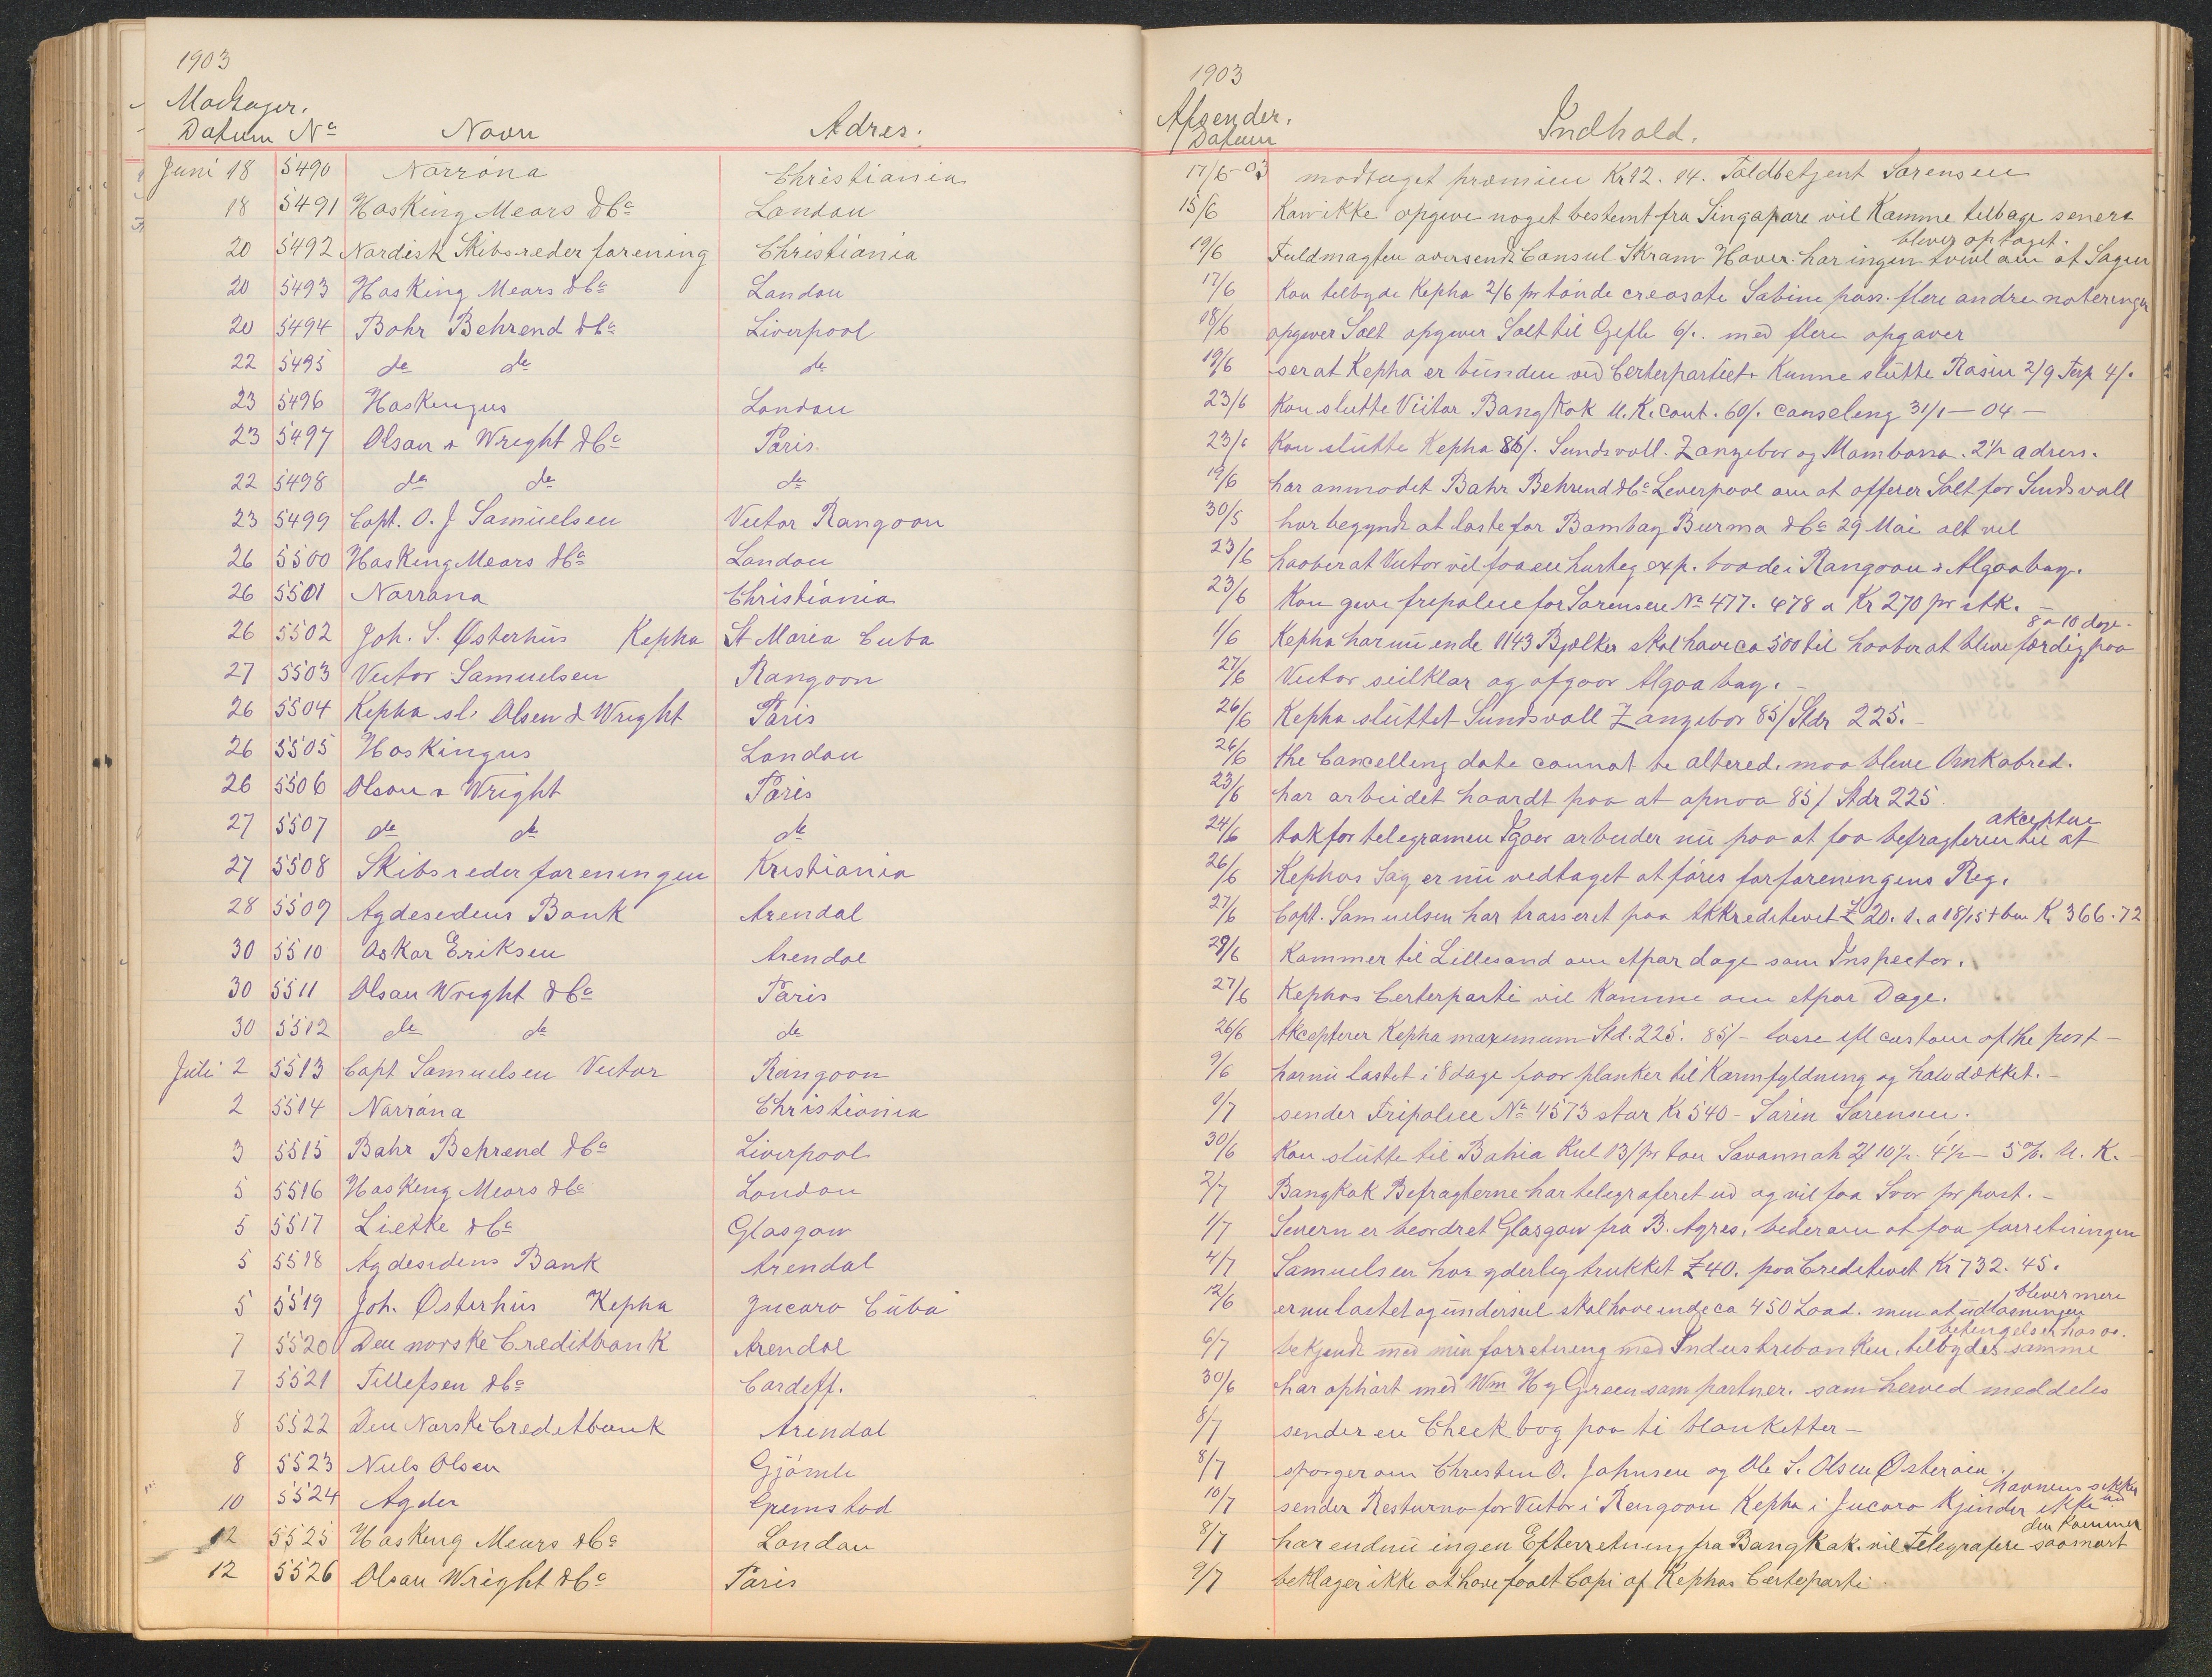 1903
Modtager.
Datum Nº Navn Adres.
Juni 18 5490 Norróna Christiania
18 5491 Hasking Mears & Cº London
20 5492 Nordisk Skibsrederforening Christiania
20 5493 Hasking Mears & Cº London
20 5494 Bahr Behrend & Cº Liverpool
22 5495 do do do
23 5496 Haskingus London
23 5497 Olsan & Wright & Cº Paris
22 5498 do do do
23 5499 Capt. O. J Samuelsen Victor Rangoon
26 5500 Hasking Mears & Cº London
26 5501 Norrana Christiania
26 5502 Joh. S. Østerhus Kepha St Maria Cuba
27 5503 Victor Samuelsen Rangoon
26 5504 Kepha sl. Olsen & Wright Paris
26 5505 Haskingus London
26 5506 Olsan & Wright Paris
27 5507 do do do
27 5508 Skibsrederforeningen Kristiania
28 5509 Agdesidens Bank Arendal
30 5510 Oskar Eriksen Arendal
30 5511 Olsan Wright & Cº Paris
30 5512 do do do
Juli 2 5513 Capt Samuelsen Victor Rangoon
2 5514 Norróna Christiania
3 5515 Bahr Behrend & Cº Liverpool
5 5516 Hasking Mears & Cº London
5 5517 Lietke & Cº Glasgow
5 5518 Agdesidens Bank Arendal
5 5519 Joh. Østerhus Kepha Jucaro Cuba
7 5520 Den norske Creditbank Arendal
7 5521 Tillefsen & Cº Cardiff.
8 5522 Den Norske Creditbank Arendal
8 5523 Niels Olsen Gjómle
10 5524 Agder Grimstad
12 5525 Hasking Mears & Cº London
12 5526 Olsan Wright & Cº Paris
1903
Afsender.
Datum Indhold.
17/6-03 modtaget præmien Kr 12. 14. Toldbetjent Sorensen
15/6 Kan ikke opgive noget bestemt fra Singapore vil Komme tilbage senere
bliver optaget.
19/6 Fuldmagten oversendt Consul Skram Havre. har ingen tvivl om at Sagen
17/6 Kan tilbyde Kepha 2/6 pr tónde creosote Sabine pass. flere andre noteringer
18/6 opgiver Salt opgiver Salt til Gefle 6/. med flere opgaver
19/6 ser at Kepha er bunden ved Certepartiet. Kunne slutte Rasin 2/9 Terp 4/.
23/6 Kan slutte Victor Bangkok U.K. cont. 60/. canseling 31/1 - 04 -
23/6 Kan slutte Kepha 86/. Sundsvall. Zanzebar og Mombassa. 2½ adress.
19/6 har anmodet Bahr Behrend & Cº Leverpool om at offerer Salt for Sundsvall
30/5 har begyndt at laste for Bombay Burma & Cº 29 Mai alt vel
23/6 haaber at Victor vil faa en hurteg exp. baade i Rangoon & Algoabay.
23/6 Kan give fripolice for Sorensen Nº 477. 478 a Kr 270 pr stk. -
8 a 10 dage -
1/6 Kepha har nu inde 1143 Bjælker skal have ca 500 til haaber at blive færdig paa
27/6 Victor seilklar og afgaar Algoa bay. -
26/6 Kepha sluttet Sundsvall Zanzebar 85/ Stdr 225. -
26/6 the Cancelling date cannot be altered. maa blive Omkabred.
23/6 har arbeidet haardt paa at opnaa 85/ Stdr 225
akceptere
24/6 tak for telegramen Igaar arbeider nu paa at faa befragteren til at
26/6 Kephas Sag er nu vedtaget at fóres for foreningens Reg.
27/6 Capt. Samuelsen har trasseret paa Akkreditivet £ 20. a 18/15 Kr 366.72
29/6 Kommer til Lillesand om etpar dage som Inspector.
27/6 Kephas Certerparti vil Komme om etpar Dage.
26/6 Akcepterer Kepha maximum Std. 225. 85/- losse custom of the port -
9/6 har nu lastet i 8 dage faar planker til Karmfyldning og halvdækket. -
1/7 sender Fripolice Nº 4573 stor Kr 540 - Sorensen.
30/6 Kan slutte til Bahia Kul 13/ pr ton Savannah 4½ - 5% U.K. -
2/7 Bangkok Befragterne har telegraferet ud og vil faa Svar pr post. -
1/7 Severn er beordret Glasgow fra B. Ayres. beder om at faa forretningen
4/7 Samuelsen har yderlig trukket £ 40. paa Creditivet Kr 732. 45.
bliver mere
12/6 er nu lastet og underseil skal have inde ca 450 Load. men at udlasningen
betingelser hos os.
6/7 bekjendt med min forretning med Industribanken, tilbydes samme
30/6 har ophórt med Wm Hy Green som partner. som herved meddeles
8/7 sender en Check bog paa ti blanketter -
8/7 spórger om Christen O. Johnsen og Ole S. Olsen Østeróen
havnens sikker
10/7 sender Resturno for Victor i Rangoon Kepha i Jucaro Kjender ikke
den Kommer
8/7 har endnu ingen Efterretning fra Bangkok. vil telegrafere saasnart
9/7 beklager ikke at have faaet Copi af Kephas Certeparti